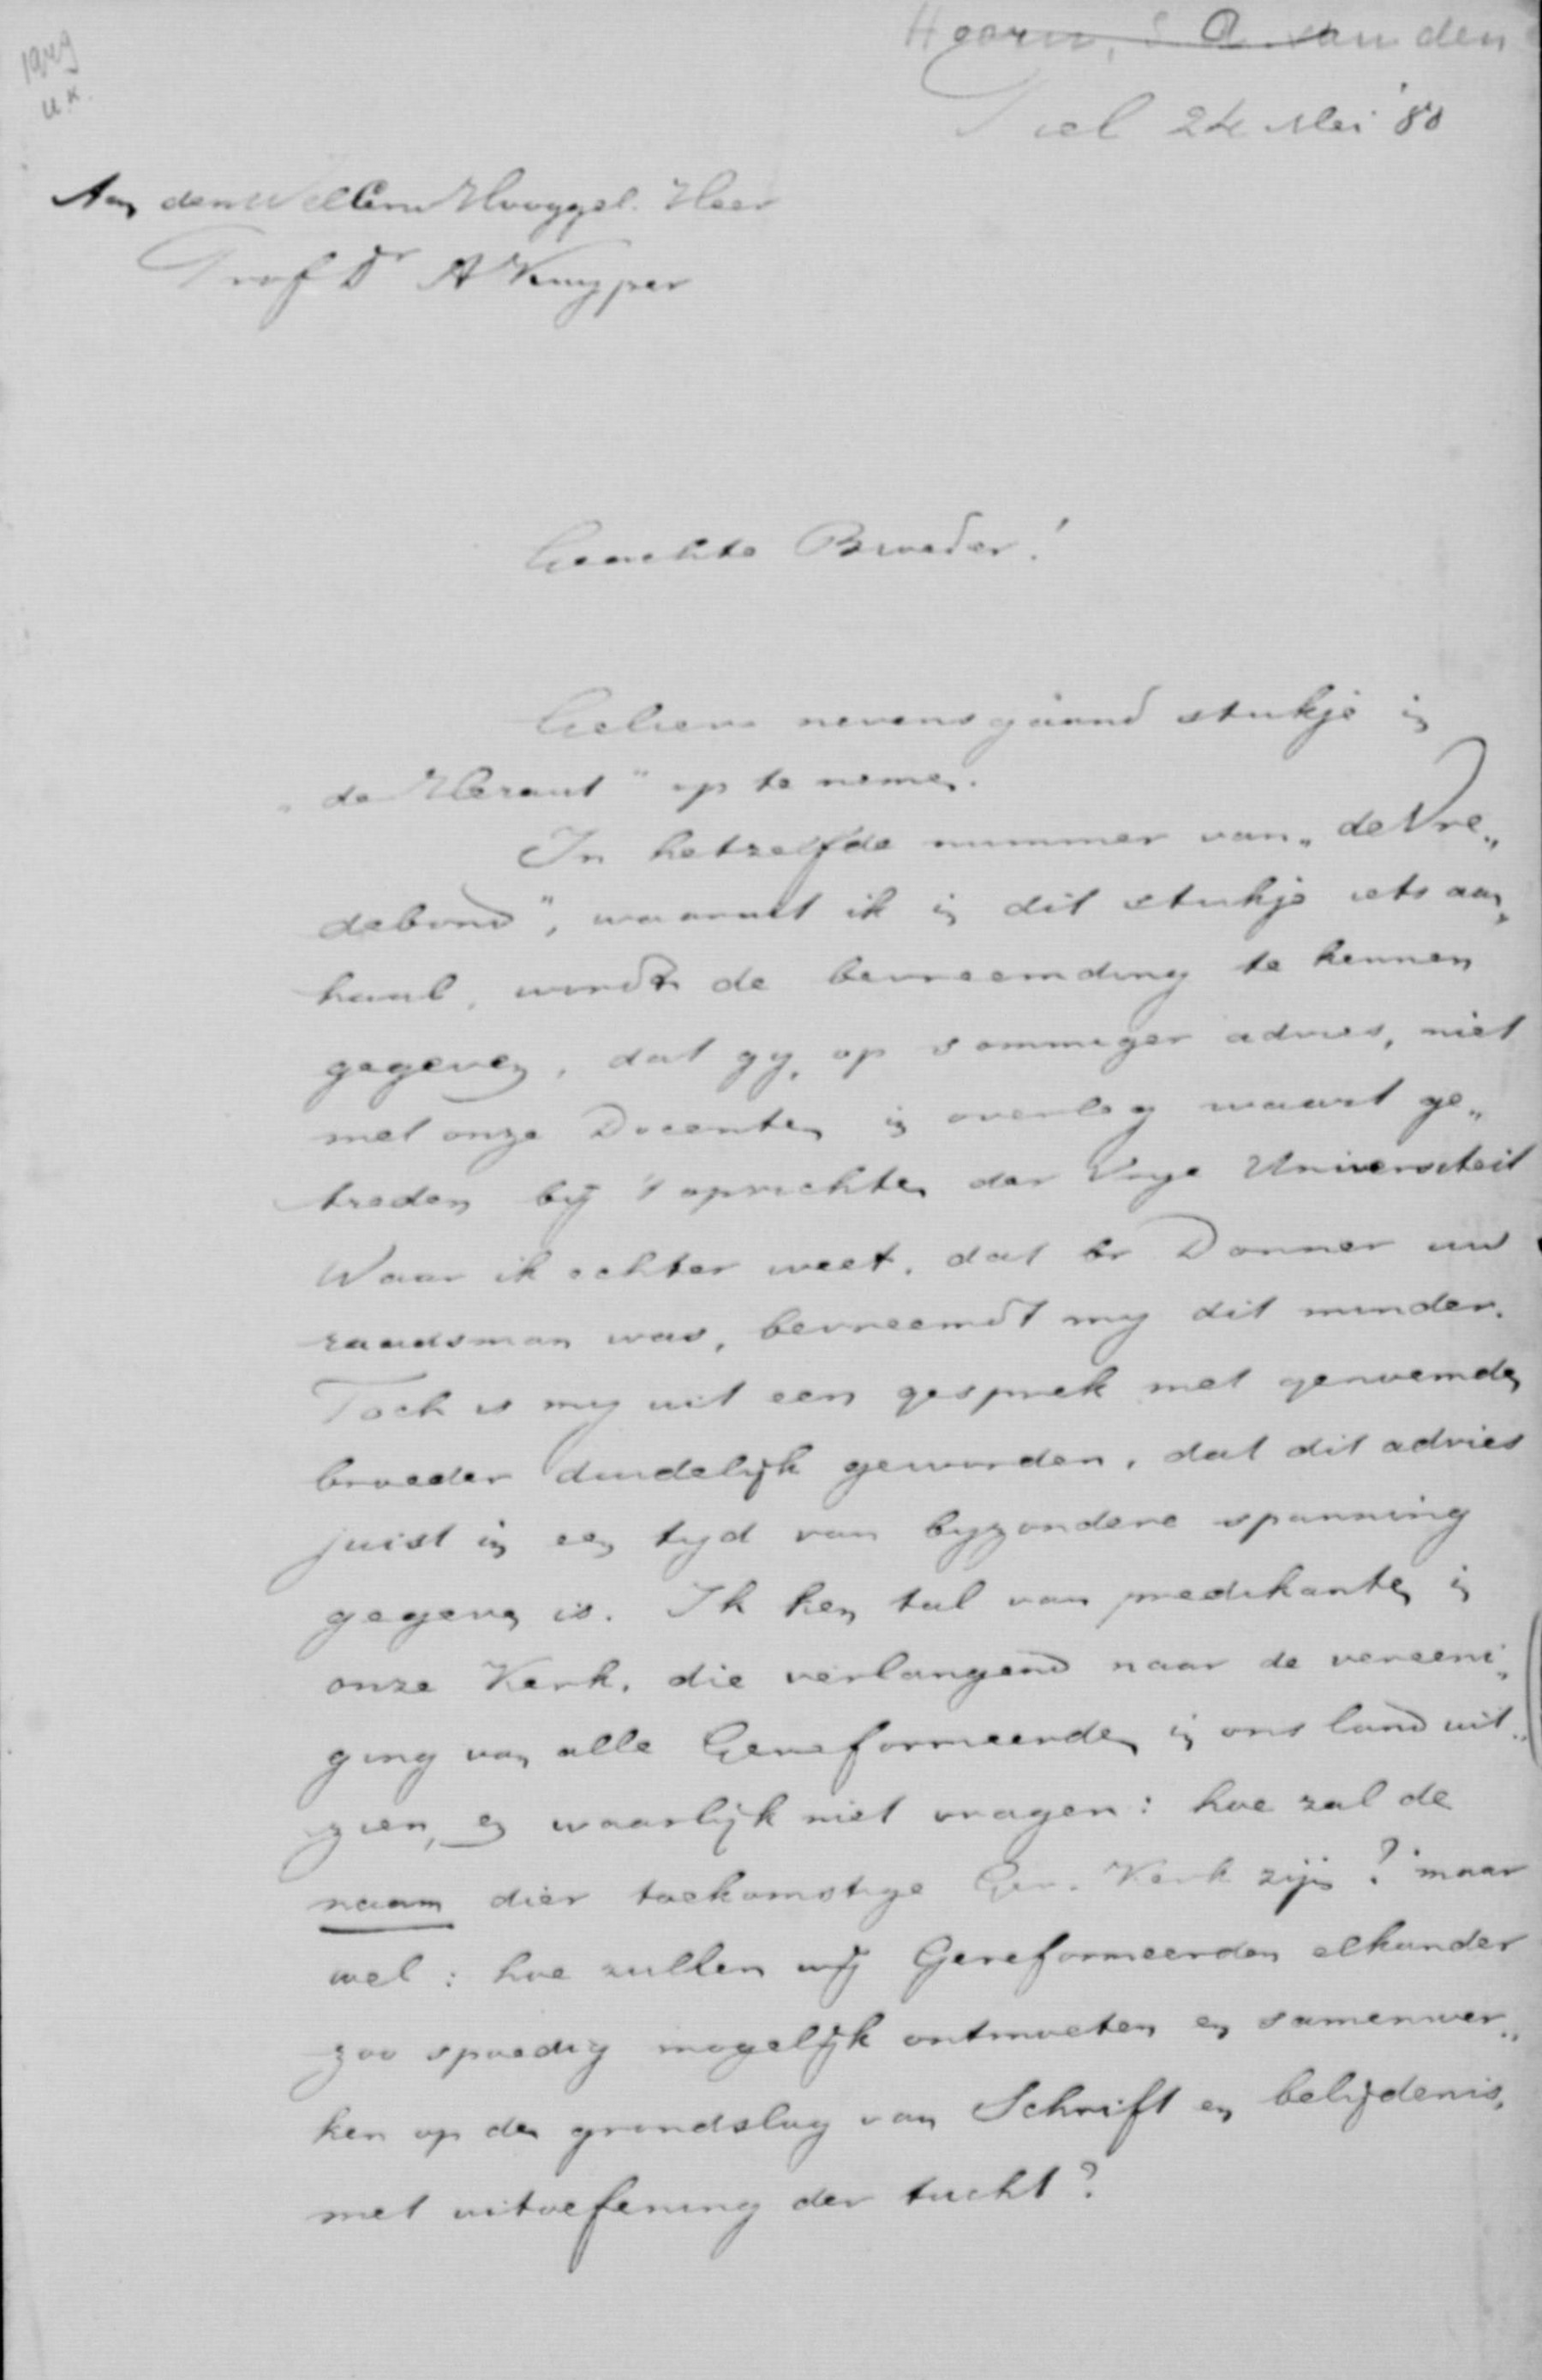 1949
u.K.
Hoorn, S. A. van den
Tiel 24 Mei '80
Aan den WelEerw Hooggel. Heer
Prof Dr A Kuyper
Geachte Broeder!
Gelieve nevensgaand stukje in
„de Heraut" op te nemen.
In hetzelfde nummer van „de Vre„
debond", waaruit ik in dit stukje iets aan„
haal, wordt de bevreemding te kennen
gegeven, dat gy, op sommiger advies, niet
met onze Docenten in overleg waart ge„
treden bij 't oprichten der Vrye Universiteit
Waar ik echter weet, dat br Donner uw
raadsman was, bevreemdt my dit minder.
Toch is my uit een gesprek met genoemden
broeder duidelijk geworden, dat dit advies
juist in een tyd van byzondere spanning
gegeven is. Ik ken tal van predikanten in
onze Kerk, die verlangend naar de vereeni„
ging van alle Gereformeerden in ons land uit„
zien, en waarlijk niet vragen: hoe zal de
naam dier toekomstige Ger. Kerk zijn? maar
wel: hoe zullen wij Gereformeerden elkander
zoo spoedig mogelijk ontmoeten en samenwer„
ken op den grondslag van Schrift en belijdenis,
met uitoefening der tucht?